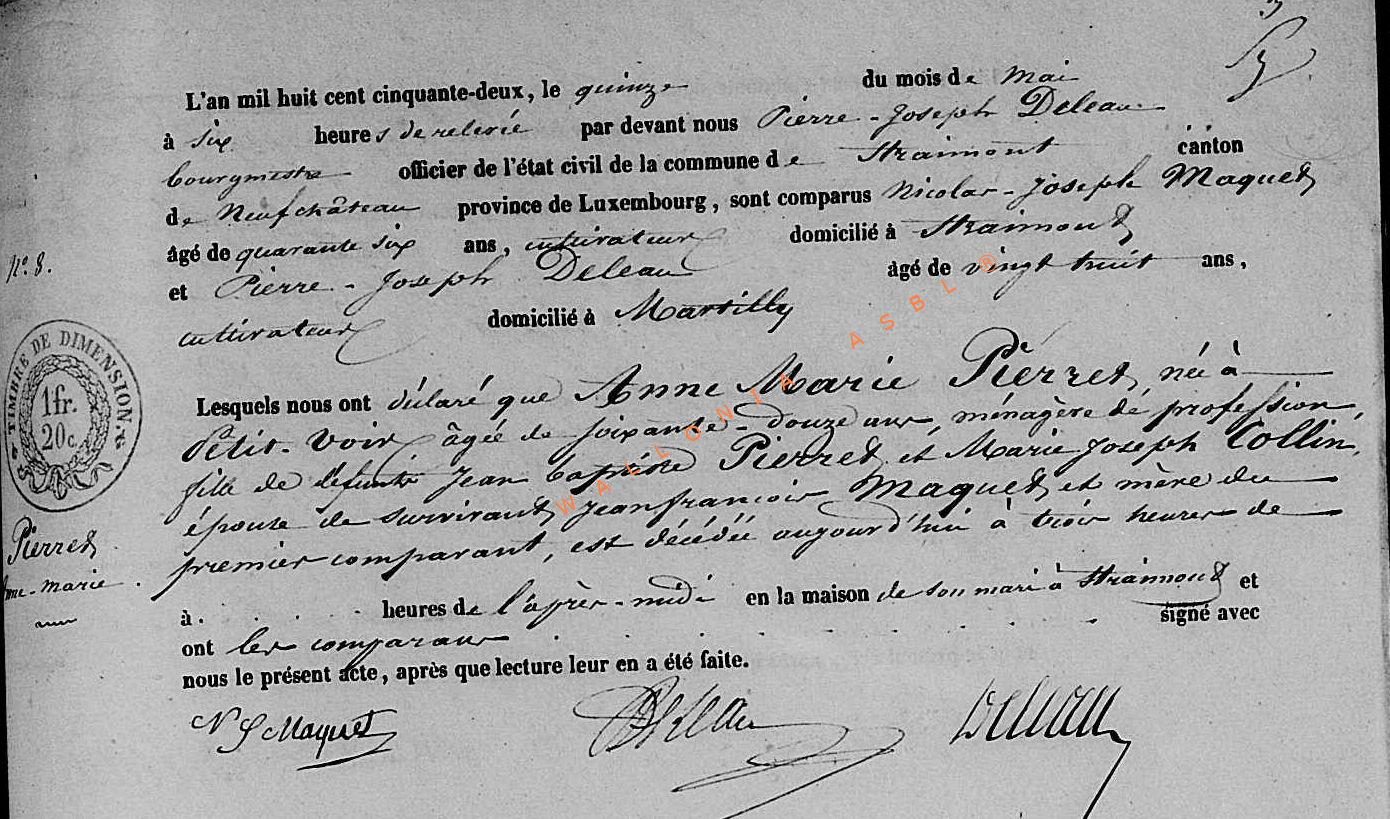 L'an mil huit cent cinquante-deux, le quinze du mois de Mai
à six heures de relevée par devant nous Pierre-Joseph Deleau
bourgmestre officier de l'état civil de la commune de Straimont canton
de Neufchâteau province de Luxembourg, sont comparus Nicolas-Joseph Maquet
âgé de quarante six ans, cultivateur domicilié à Straimont
et Pierre-Joseph Deleau âgé de vingt huit ans,
cultivateur domicilié à Martilly
Lesquels nous ont déclaré que Anne Marie Pierret, née à
Petit-Voir âgée de soixante-douze ans, ménagère de profession,
fille de défunts Jean baptiste Pierret et Marie Joseph Collin,
épouse de survivant Jean françois Maquet et mère du
premier comparant, est décédée aujourd'hui à trois heures de
à . . . heures de l'après-midi en la maison de son mari à Straimont et
ont les comparans signé avec
nous le présent acte, après que lecture leur en a été faite.
N J Maquet Deleau Deleau
N.º 8.
TIMBRE DE DIMENSION.
1 fr.
20 c.
Pierret
Anne-Marie
WALLONIA ASBL ®